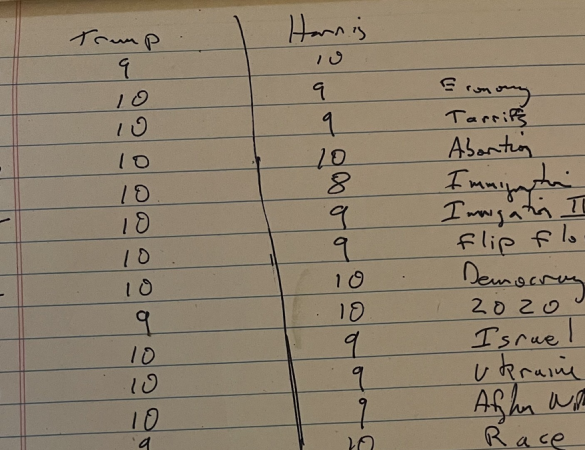 Trump Harris
9 10
10 9 Economy
10 9 Tarrifs
10 10 Abortion
10 8 Immigration
10 9 Immigration II
10 9 Flip Flo
10 10 Democracy
9 10 2020
10 9 Israel
10 9 Ukraine
10 9 Afghn
9 10 Race